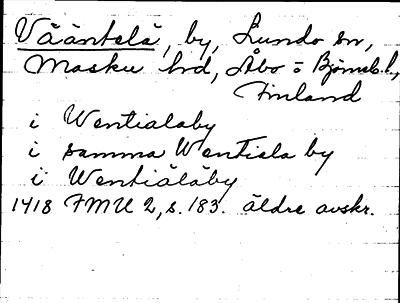 Vääntelä, by, Lundo sn,
Masku hd, Åbo o Björneb. l.,
Finland
i Wentialaby
i samma Wentiala by
i Wentiäläby
1418 FMU 2, s. 183. äldre avskr.